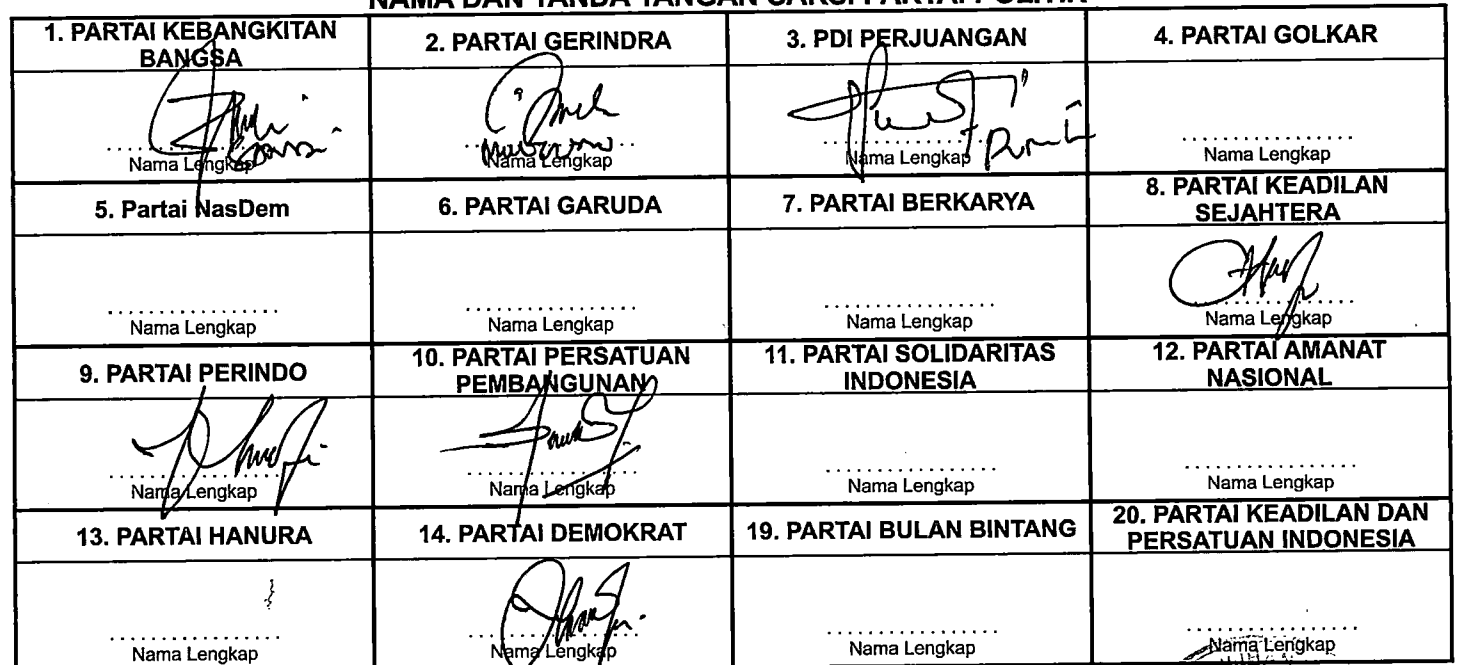 NAMA DAN TANDA TANGAN SAKSI PARTAI POLITIK
1. PARTAI KEBANGKITAN
BANGSA
2. PARTAI GERINDRA
3. PDI PERJUANGAN
4. PARTAI GOLKAR
Nama Lengkap
Nama Lengkap
Nama Lengkap
Nama Lengkap
5. Partai NasDem
6. PARTAI GARUDA
7. PARTAI BERKARYA
8. PARTAI KEADILAN
SEJAHTERA
Nama Lengkap
Nama Lengkap
Nama Lengkap
Nama Lengkap
9. PARTAI PERINDO
10. PARTAI PERSATUAN
PEMBANGUNAN
11. PARTAI SOLIDARITAS
INDONESIA
12. PARTAI AMANAT
NASIONAL
Nama Lengkap
Nama Lengkap
Nama Lengkap
Nama Lengkap
13. PARTAI HANURA
14. PARTAI DEMOKRAT
19. PARTAI BULAN BINTANG
20. PARTAI KEADILAN DAN
PERSATUAN INDONESIA
Nama Lengkap
Nama Lengkap
Nama Lengkap
Nama Lengkap